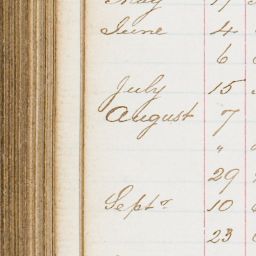 May 17
June 4
6
July 15
August 7
" "
29
Septr 10
23